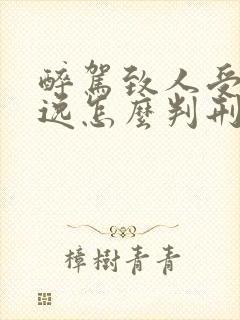 醉駕致人受
逸怎麼判刑
樟樹青青